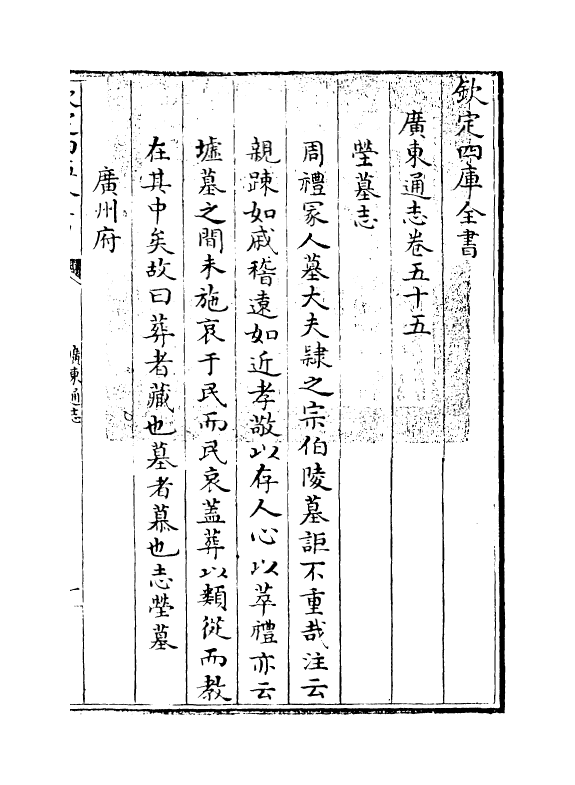 欽定四庫全書
廣東通志卷五十五
塋墓志
周禮冢人墓大夫隸之宗伯陵墓詎不重哉注云
親踈如戚稽遠如近孝敬以存人心以萃禮亦云
墟墓之間未施哀于民而民哀蓋葬以類從而教
在其中矣故曰葬者藏也墓者慕也志塋墓
廣州府
廣東通志
一